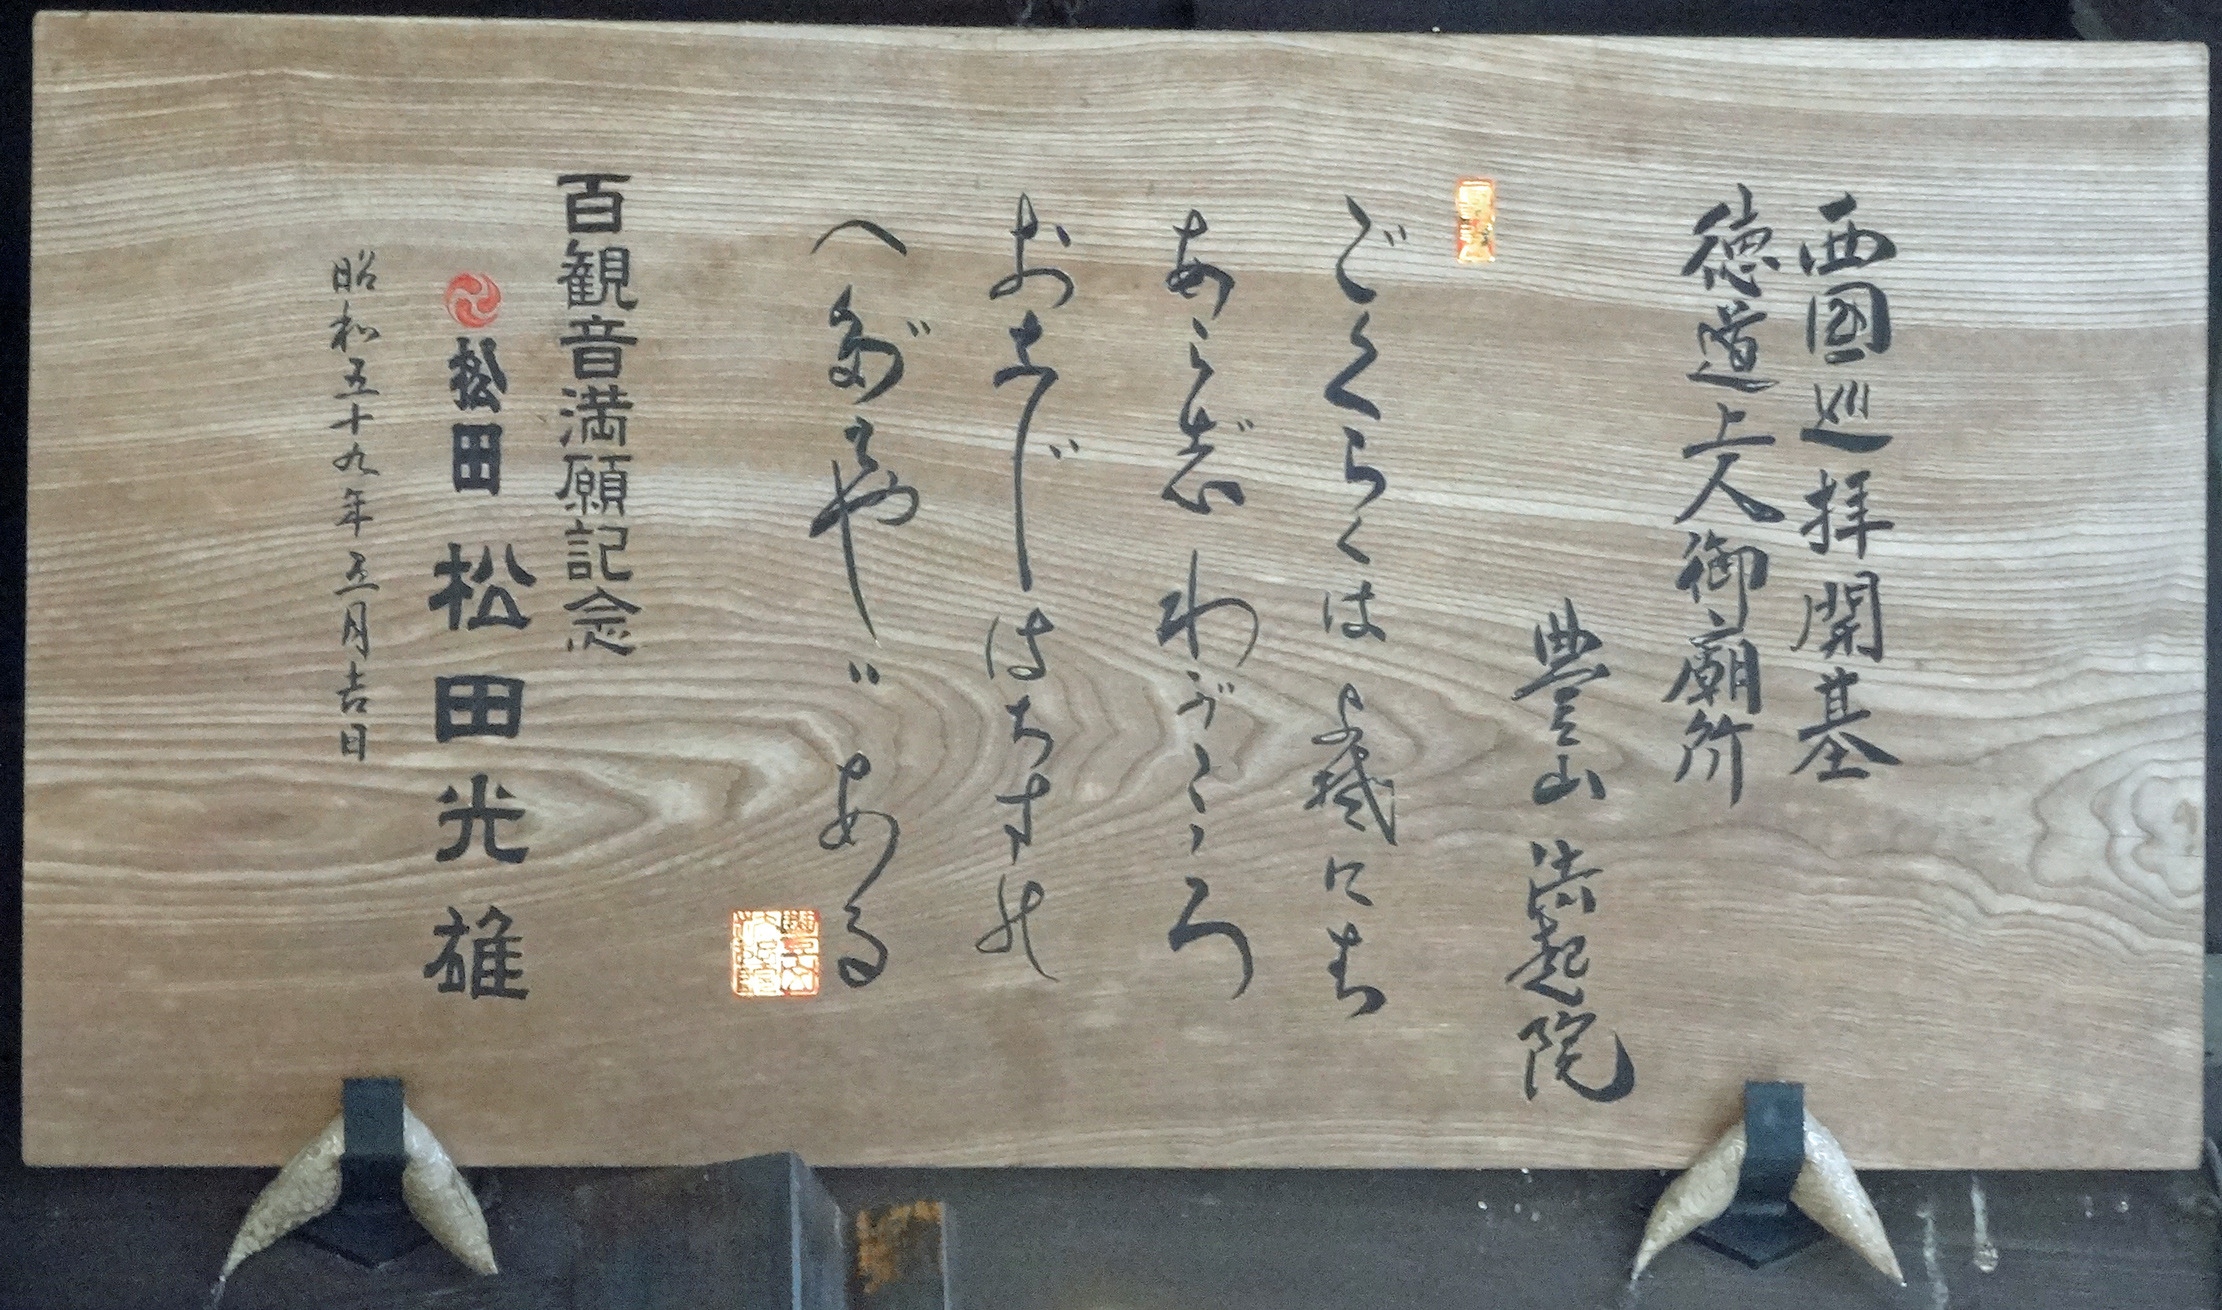 西國巡拝開基
徳道上人御廟所
豊山法起院
ごくらくはよそには
あらじわがこゝろ
おなじはちすの
へだてやはある
百観音満願記念
松田 松田光雄
昭和五十九年五月吉日